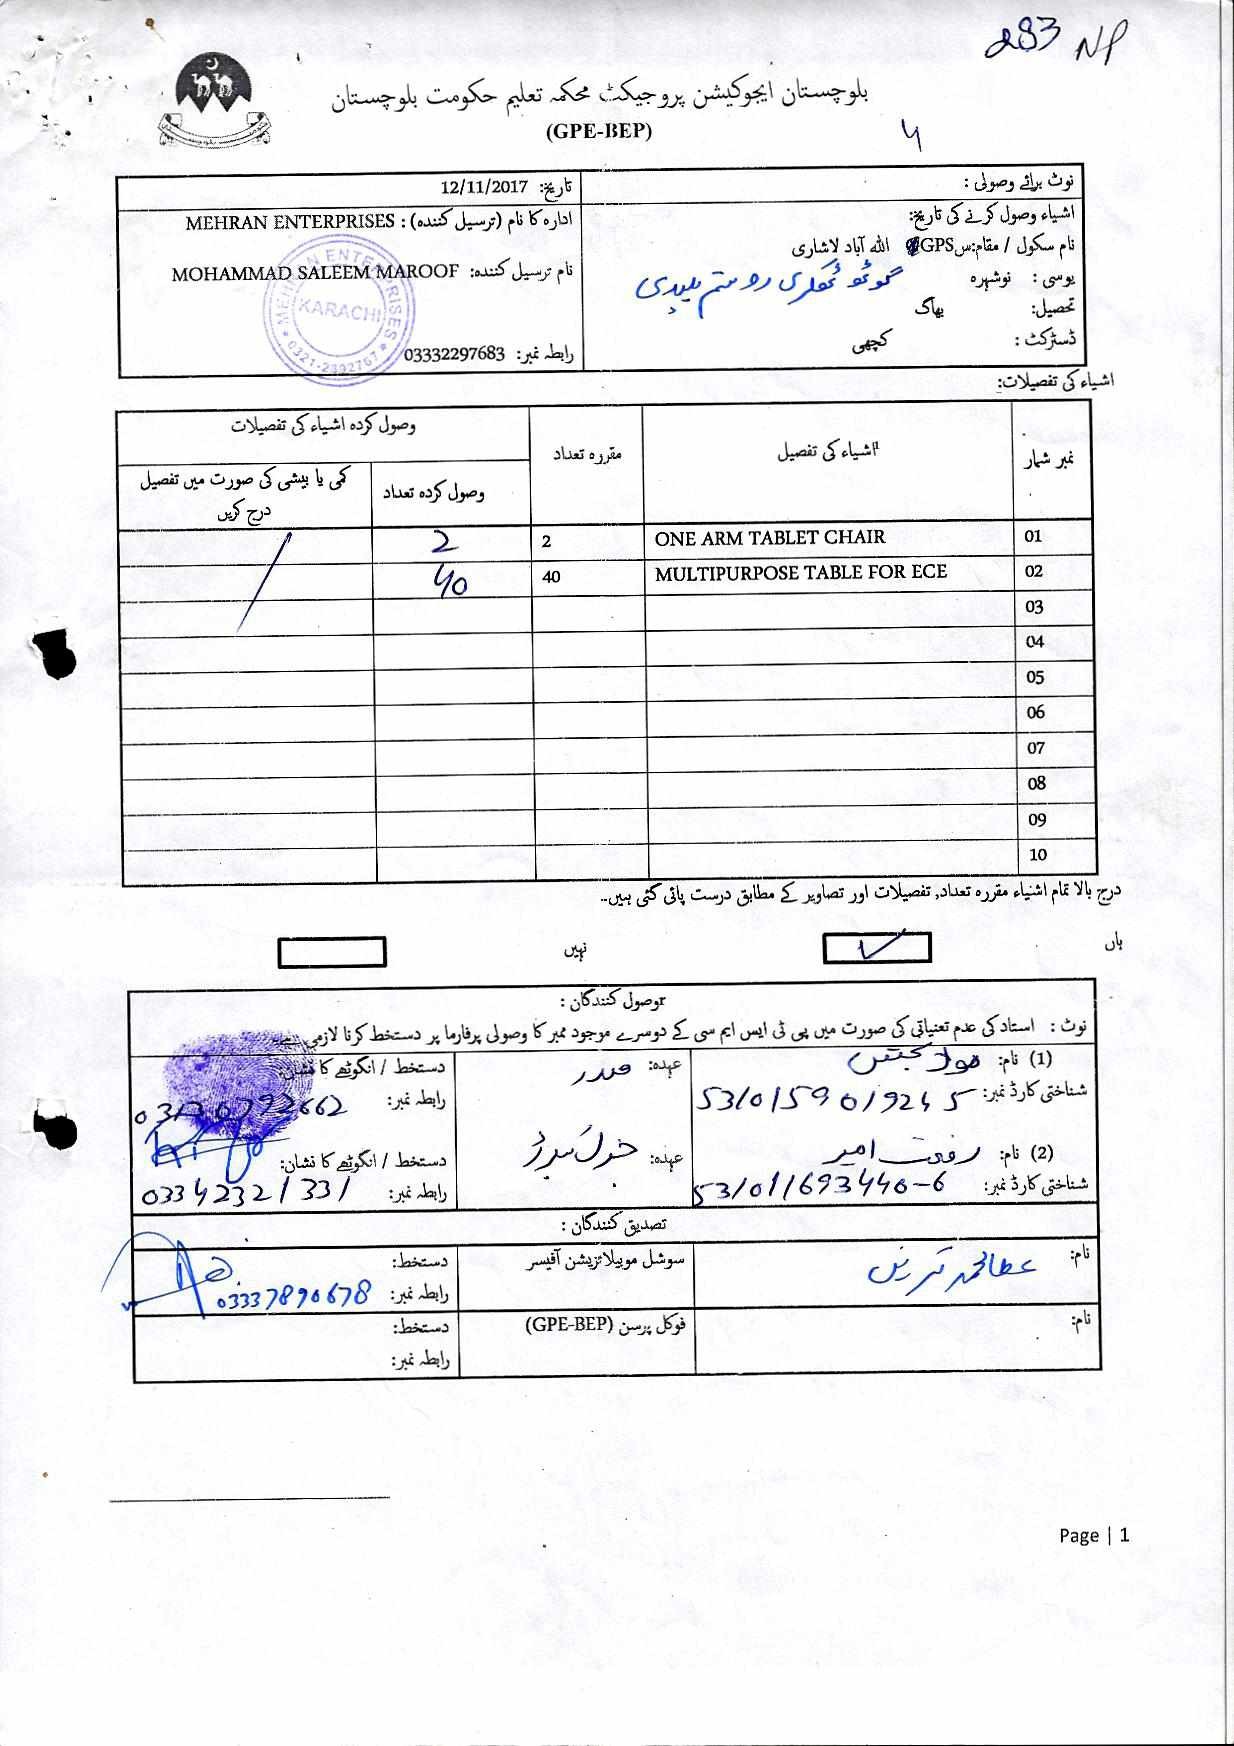 283 NP
بلوچستان ایجوکیشن پروجیکٹ محکمہ تعلیم حکومت بلوچستان
(GPE-BEP)
4
نوٹ برائے وصولی :
تاریخ: 12/11/2017
اشیاء وصول کرنے کی تاریخ:
ادارہ کا نام (ترسیل کنندہ) : MEHRAN ENTERPRISES
نام سکول / مقام: GPS اللہ آباد لاشاری
یوسی : نوشہرہ
گوٹھ
نام ترسیل کنندہ: MOHAMMAD SALEEM MAROOF
تحصیل: بھاگ
ڈسٹرکٹ : کچھی
رابطہ نمبر: 03332297683
MEHRAN ENTERPRISES
KARACHI
اشیاء کی تفصیلات:
نمبر شمار
اشیاء کی تفصیل
مقررہ تعداد
وصول کردہ اشیاء کی تفصیلات
وصول کردہ تعداد
کمی یا بیشی کی صورت میں تفصیل درج کریں
01 ONE ARM TABLET CHAIR 2 2
02 MULTIPURPOSE TABLE FOR ECE 40 40
03
04
05
06
07
08
09
10
درج بالا تمام اشیاء مقررہ تعداد, تفصیلات اور تصاویر کے مطابق درست پائی گئی ہیں..
ہاں ✓ نہیں
وصول کنندگان :
نوٹ : استاد کی عدم تعیناتی کی صورت میں پی ٹی ایس ایم سی کے دوسرے موجود ممبر کا وصولی پرفارما پر دستخط کرنا لازمی
(1) نام: مولا بخش عہدہ: صدر دستخط / انگوٹھے کا نشان:
شناختی کارڈ نمبر: 5310159019245 رابطہ نمبر:
(2) نام: رفعت امیر عہدہ: دستخط / انگوٹھے کا نشان:
شناختی کارڈ نمبر: 531011693440-6 رابطہ نمبر: 03342321331
تصدیق کنندگان :
نام: عطا محمد سوشل موبیلائزیشن آفیسر دستخط:
رابطہ نمبر: 03337890678
نام: فوکل پرسن (GPE-BEP) دستخط:
رابطہ نمبر:
Page | 1